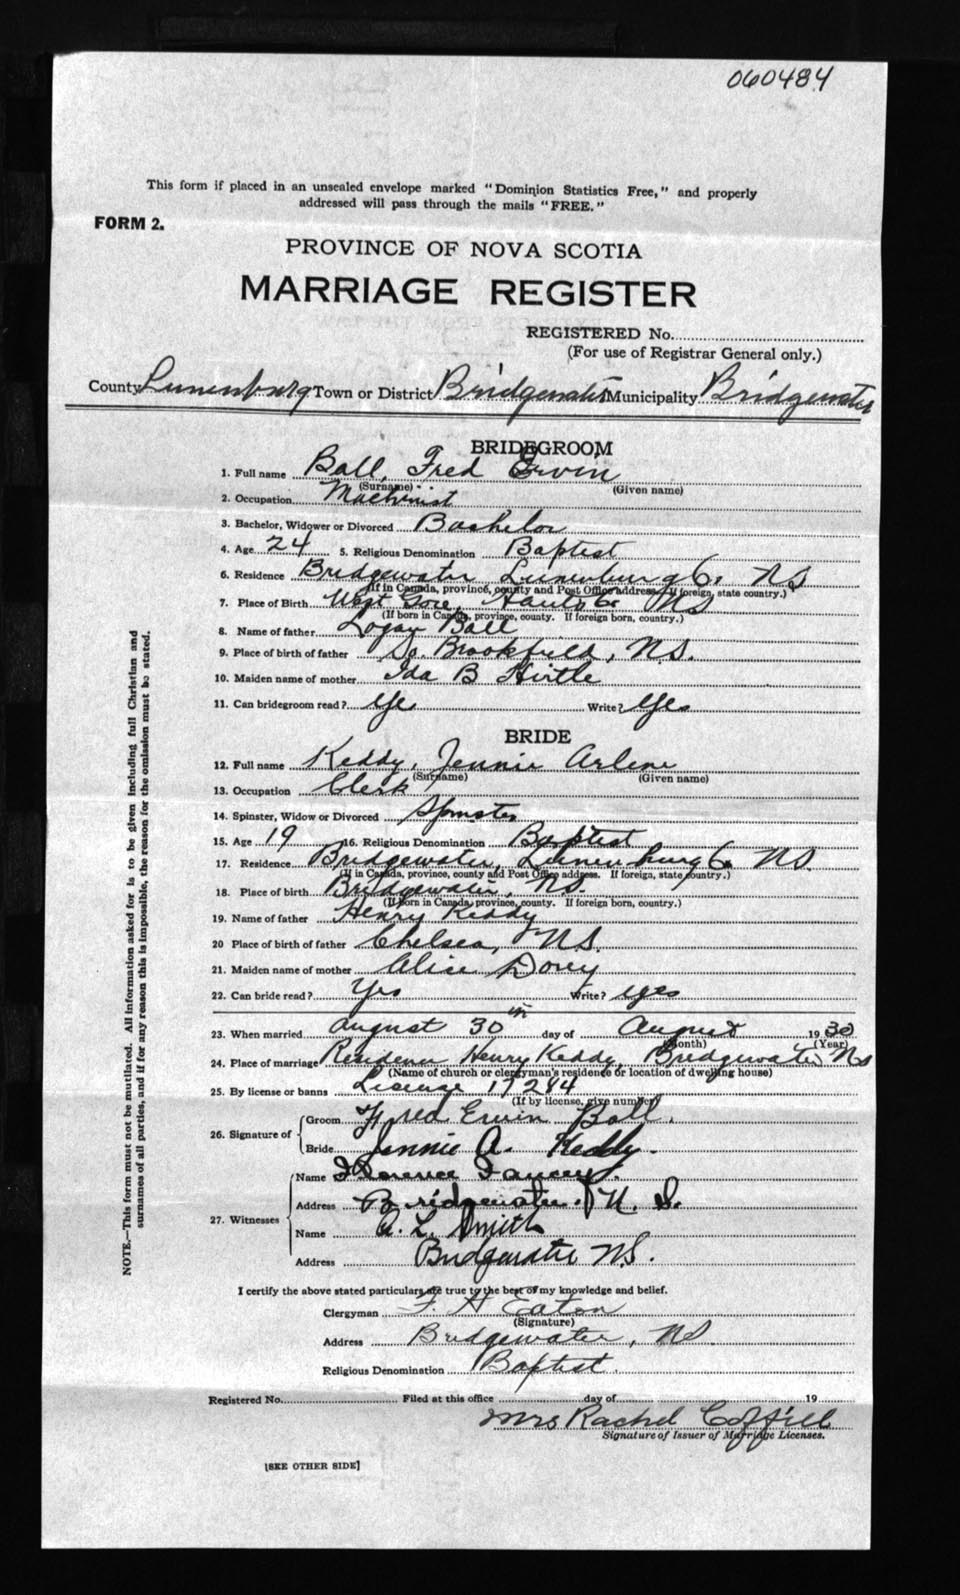 060484
This form if placed in an unsealed envelope marked "Dominion Statistics Free," and properly
addressed will pass through the mails "FREE."
FORM 2.
PROVINCE OF NOVA SCOTIA
MARRIAGE REGISTER
REGISTERED No.
(For use of Registrar General only.)
County Lunenburg Town or District Bridgewater Municipality Bridgewater
BRIDEGROOM
1. Full name Ball, Fred Ervin
(Surname) (Given name)
2. Occupation Machinist
3. Bachelor, Widower or Divorced Bachelor
4. Age 24 5. Religious Denomination Baptist
6. Residence Bridgewater Lunenburg Co. NS
(If in Canada, province, county and Post Office address. If foreign, state country.)
7. Place of Birth West Gore, Hants Co NS
(If born in Canada, province, county. If foreign born, country.)
8. Name of father Logan Ball
9. Place of birth of father So. Brookfield, N.S.
10. Maiden name of mother Ida B Hirtle
11. Can bridegroom read? Yes Write? Yes
BRIDE
12. Full name Keddy, Jennie Arlene
(Surname) (Given name)
13. Occupation Clerk
14. Spinster, Widow or Divorced Spinster
15. Age 19 16. Religious Denomination Baptist
17. Residence Bridgewater, Lunenburg Co NS.
(If in Canada, province, county and Post Office address. If foreign, state country.)
18. Place of birth Bridgewater, N.S.
(If born in Canada, province, county. If foreign born, country.)
19. Name of father Henry Keddy
20 Place of birth of father Chelsea, N.S.
21. Maiden name of mother Alice Dorey
22. Can bride read? Yes Write? yes
23. When married August 30 day of August 1930
(Month) (Year)
24. Place of marriage Residence Henry Keddy, Bridgewater NS
(Name of church or clergyman's residence or location of dwelling house)
25. By license or banns License 17284
(If by license, give number)
26. Signature of Groom Fred Erwin Ball.
Bride Jennie A. Keddy.
27. Witnesses Name Florence Fancey.
Address Bridgewater. N. S.
Name A. L. Smith
Address Bridgewater N.S.
I certify the above stated particulars are true to the best of my knowledge and belief.
Clergyman F. H Eaton
(Signature)
Address Bridgewater, NS
Religious Denomination Baptist.
Registered No. Filed at this office day of 19
Mrs Rachel Coffill
Signature of Issuer of Marriage Licenses.
[SEE OTHER SIDE]
NOTE.—This form must not be mutilated. All information asked for is to be given including full Christian and
surnames of all parties, and if for any reason this is impossible, the reason for the omission must be stated.